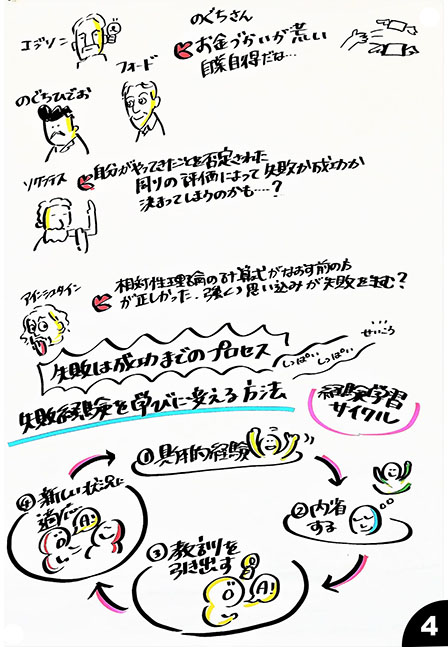 のぐちさん
エジソン
お金づかいが荒い
自業自得だな…
フォード
のぐちひでお
自分がやってきたことを否定された
周りの評価によって失敗か成功か
決まってしまうのかも…?
ソクラテス
アインシュタイン
相対性理論の計算式がなおす前の方
が正しかった. 強い思い込みが失敗を生む?
失敗は成功までのプロセス
しっぱい
しっぱい
せいこう
失敗経験を学びに変える方法
経験学習
サイクル
①具体的経験
②内省
する
③教訓を
引き出す
A!
④新しい状況に
適応
A!
4